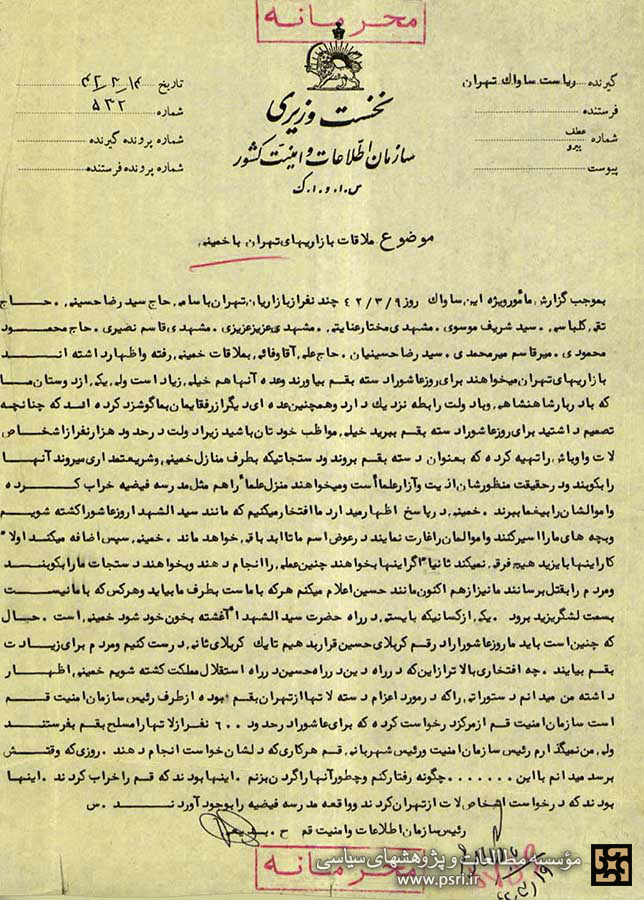 محرمانه
نخست وزیری
سازمان اطلاعات و امنیت کشور
س.ا.و.ا.ک
گیرنده ریاست ساواک تهران
فرستنده
شماره عطف پیرو
پیوست
تاریخ ۴۲/۳/۱۴
شماره ۵۳۲
شماره پرونده گیرنده
شماره پرونده فرستنده
موضوع ملاقات بازاریهای تهران با خمینی
بموجب گزارش مأمور ویژه این ساواک روز ۴۲/۳/۹ چند نفر از بازاریان تهران باسامی حاج سید رضا حسینی. حاج
تقی کلباسی. سید شریف موسوی. مشهدی مختار عنایتی. مشهدی عزیز عزیزی. مشهدی قاسم نصیری. حاج محمود
محمودی. میر قاسم میر محمدی. سید رضا حسینیان. حاج علی آقا وفائی بملاقات خمینی رفته و اظهار داشته اند
بازاریهای تهران میخواهند برای روز عاشورا دسته بقم بیاورند وعده آنها هم خیلی زیاد است ولی یکی از دوستان ما
که با دربار شاهنشاهی و با دولت رابطه نزدیک دارد و همچنین عده ای دیگر از رفقایمان بما گوشزد کرده اند که چنانچه
تصمیم داشتید برای روز عاشورا دسته بقم ببرید خیلی مواظب خودتان باشید زیرا دولت در حدود هزار نفر از اشخاص
لات و اوباش را تهیه کرده که بعنوان دسته بقم بروند و دستجاتیکه بطرف منازل خمینی و شریعتمداری میروند آنها
را بکوبند و در حقیقت منظورشان اذیت و آزار علماً است و میخواهند منزل علماً را هم مثل مدرسه فیضیه خراب کرده
و اموالشان را بیغما ببرند. خمینی در پاسخ اظهار میدارد ما افتخار میکنیم که مانند سید الشهدا روز عاشورا کشته شویم
و بچه های ما را اسیر کنند و اموالمان را غارت نمایند در عوض اسم ما تا ابد باقی خواهد ماند. خمینی سپس اضافه میکند اولاً
کار اینها با یزید هیچ فرقی نمیکند ثانیاً اگر اینها بخواهند چنین عملی را انجام دهند و بخواهند دستجات ما را بکوبند
و مردم را بقتل برسانند ما نیز از هم اکنون مانند حسین اعلام میکنم هر که با ماست بطرف ما بیاید و هر کس که با ما نیست
بسمت لشگر یزید برود. یکی از کسانیکه بایستی در راه حضرت سید الشهداً آغشته بخون خود شود خمینی است. حال
که چنین است باید ما روز عاشورا را در قم کربلای حسین قرار بدهیم تا یک کربلای ثانی درست کنیم و مردم برای زیارت
بقم بیایند. چه افتخاری بالاتر از این که در راه دین در راه حسین در راه استقلال مملکت کشته شویم خمینی اظهار
داشته من میدانم دستوراتی را که در مورد اعزام دسته لاتها از تهران بقم بوده از طرف رئیس سازمان امنیت قم
است سازمان امنیت قم از مرکز درخواست کرده که برای عاشورا در حدود ۶۰۰ نفر از لاتها را مسلح بقم بفرستند
ولی من نمیگذارم رئیس سازمان امنیت و رئیس شهربانی قم هر کاری که دلشان خواست انجام دهند. روزی که وقتش
برسد میدانم با این ....... چگونه رفتار کنم و چطور آنها را گردن بزنم. اینها بودند که قم را خراب کردند. اینها
بودند که درخواست اشخاص لات از تهران کردند و واقعه مدرسه فیضیه را بوجود آوردند. س
رئیس سازمان اطلاعات و امنیت قم
محرمانه
مؤسسه مطالعات و پژوهشهای سیاسی
www.psri.ir